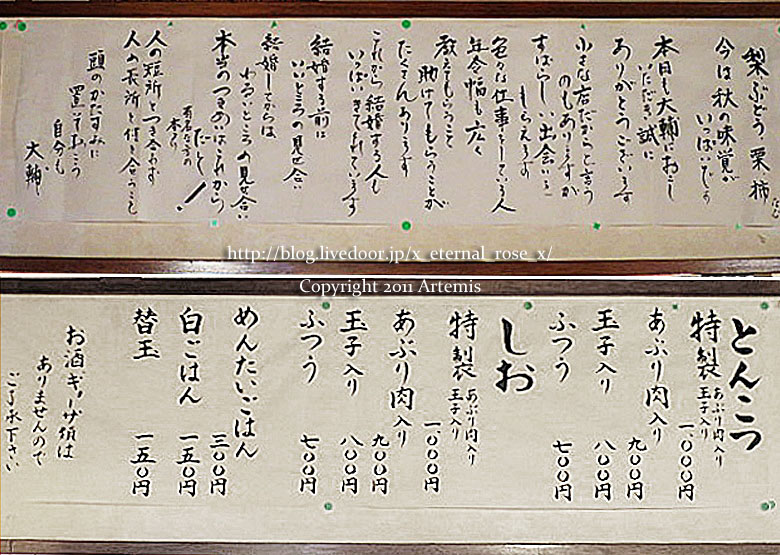 梨ぶどう 栗 柿
今は秋の味覚が
いっぱいでしょ
本日も大輔におこし
いただき誠に
ありがとうございます
小さな店だからと言う
のもありますが
すばらしい出会いを
もらえます
色々な仕事をしている人
年令幅も広く
教えてもらうこと
助けてもらうことが
たくさんあります
これから結婚する人も
いっぱいきてくれています
結婚する前は
いいところの見せ合い
結婚してからは
わるいところの見せ合い
本当のつきあいはこれから
だと!
人の短所とつき合わず
人の長所と付き合うことも
頭のかたすみに
置いておこう
自分も
大輔
http://blog.livedoor.jp/x_eternal_rose_x/
Copyright 2011 Artemis
とんこつ
特製 あぶり肉入り 玉子入り 一、〇〇〇円
あぶり肉入り 九〇〇円
玉子入り 八〇〇円
ふつう 七〇〇円
しお
特製 あぶり肉入り 玉子入り 一、〇〇〇円
あぶり肉入り 九〇〇円
玉子入り 八〇〇円
ふつう 七〇〇円
めんたいごはん 三〇〇円
白ごはん 一五〇円
替玉 一五〇円
お酒ギョーザ類は
ありませんので
ご了承下さい